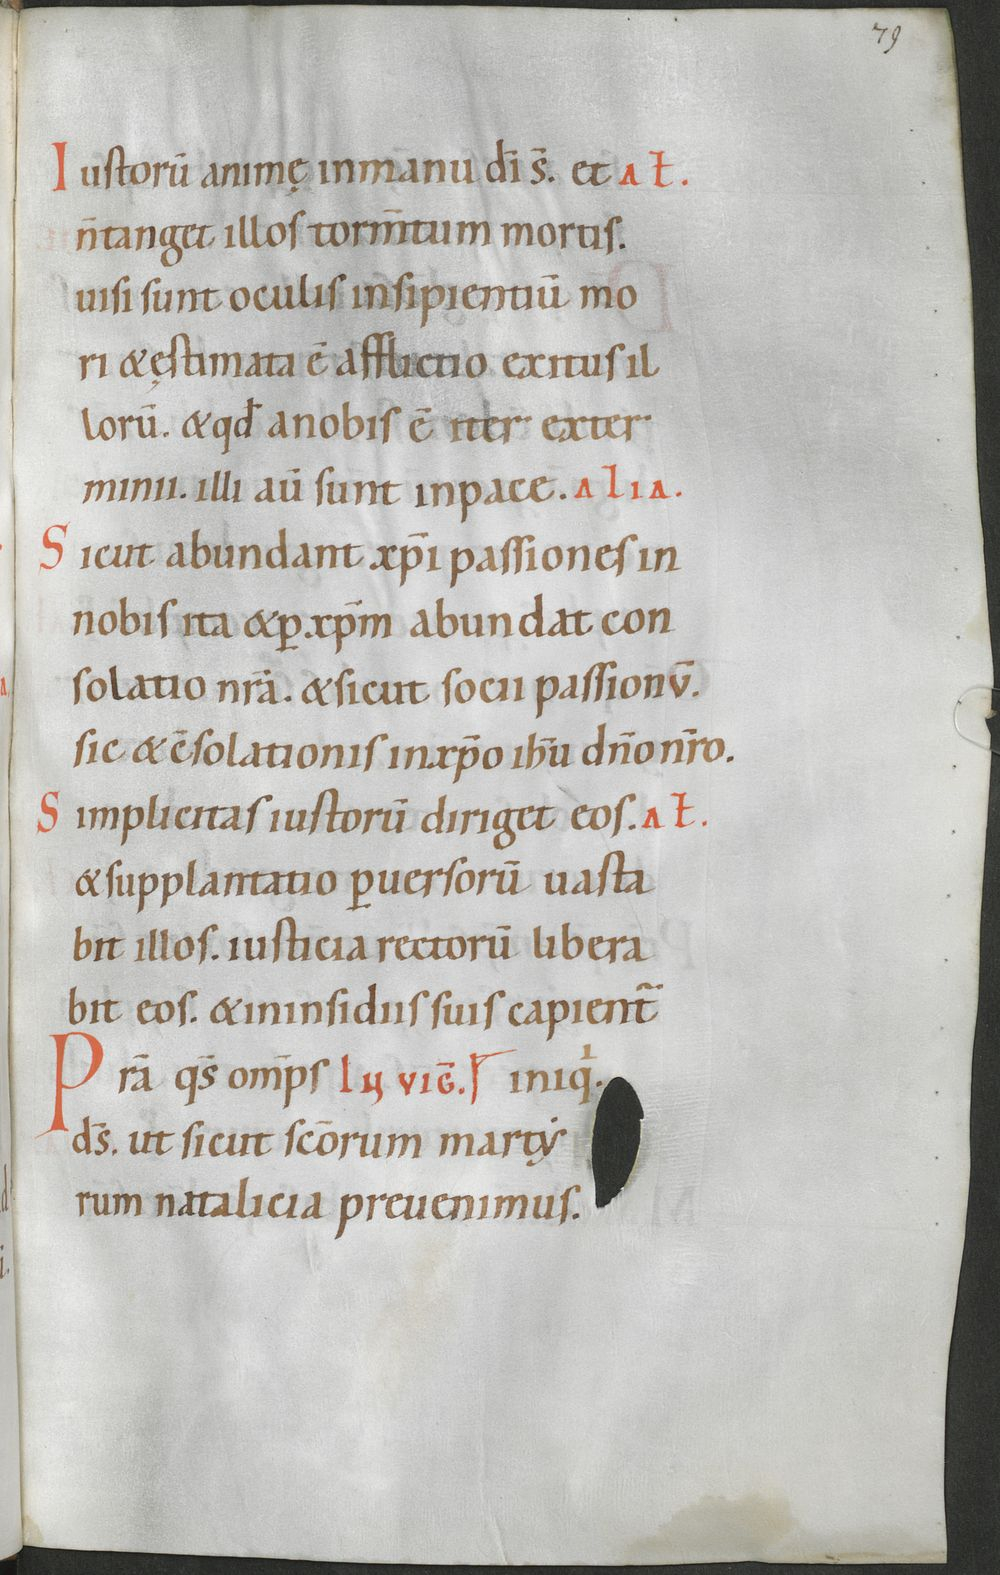 79
Iustorū animę inmanu dī s̄. et Ał.
n̄tanget illos torm̄tum mortis.
uisi sunt oculis insipientiū mo
ri &ęstimata ē afflictio exitus il
lorū. &qd̄ anobis ē iter exter
minii. illi aū sunt inpace. Alia.
Sicut abundant xp̄i passiones in
nobis ita &p̱ xp̄m abundat con
solatio nr̄a. &sicut socii passionū.
sic &c̄solationis inxp̄o ih̄u dn̄o nr̄o.
Simplicitas iustorū diriget eos. Ał.
&supplantatio p̱uersorū uasta
bit illos. iusticia rectorū libera
bit eos. &ininsidiis suis capient̃
Prā qs̄ om̄ps
ds̄. ut sicut scōrum martẏ
rum natalicia preuenimus.